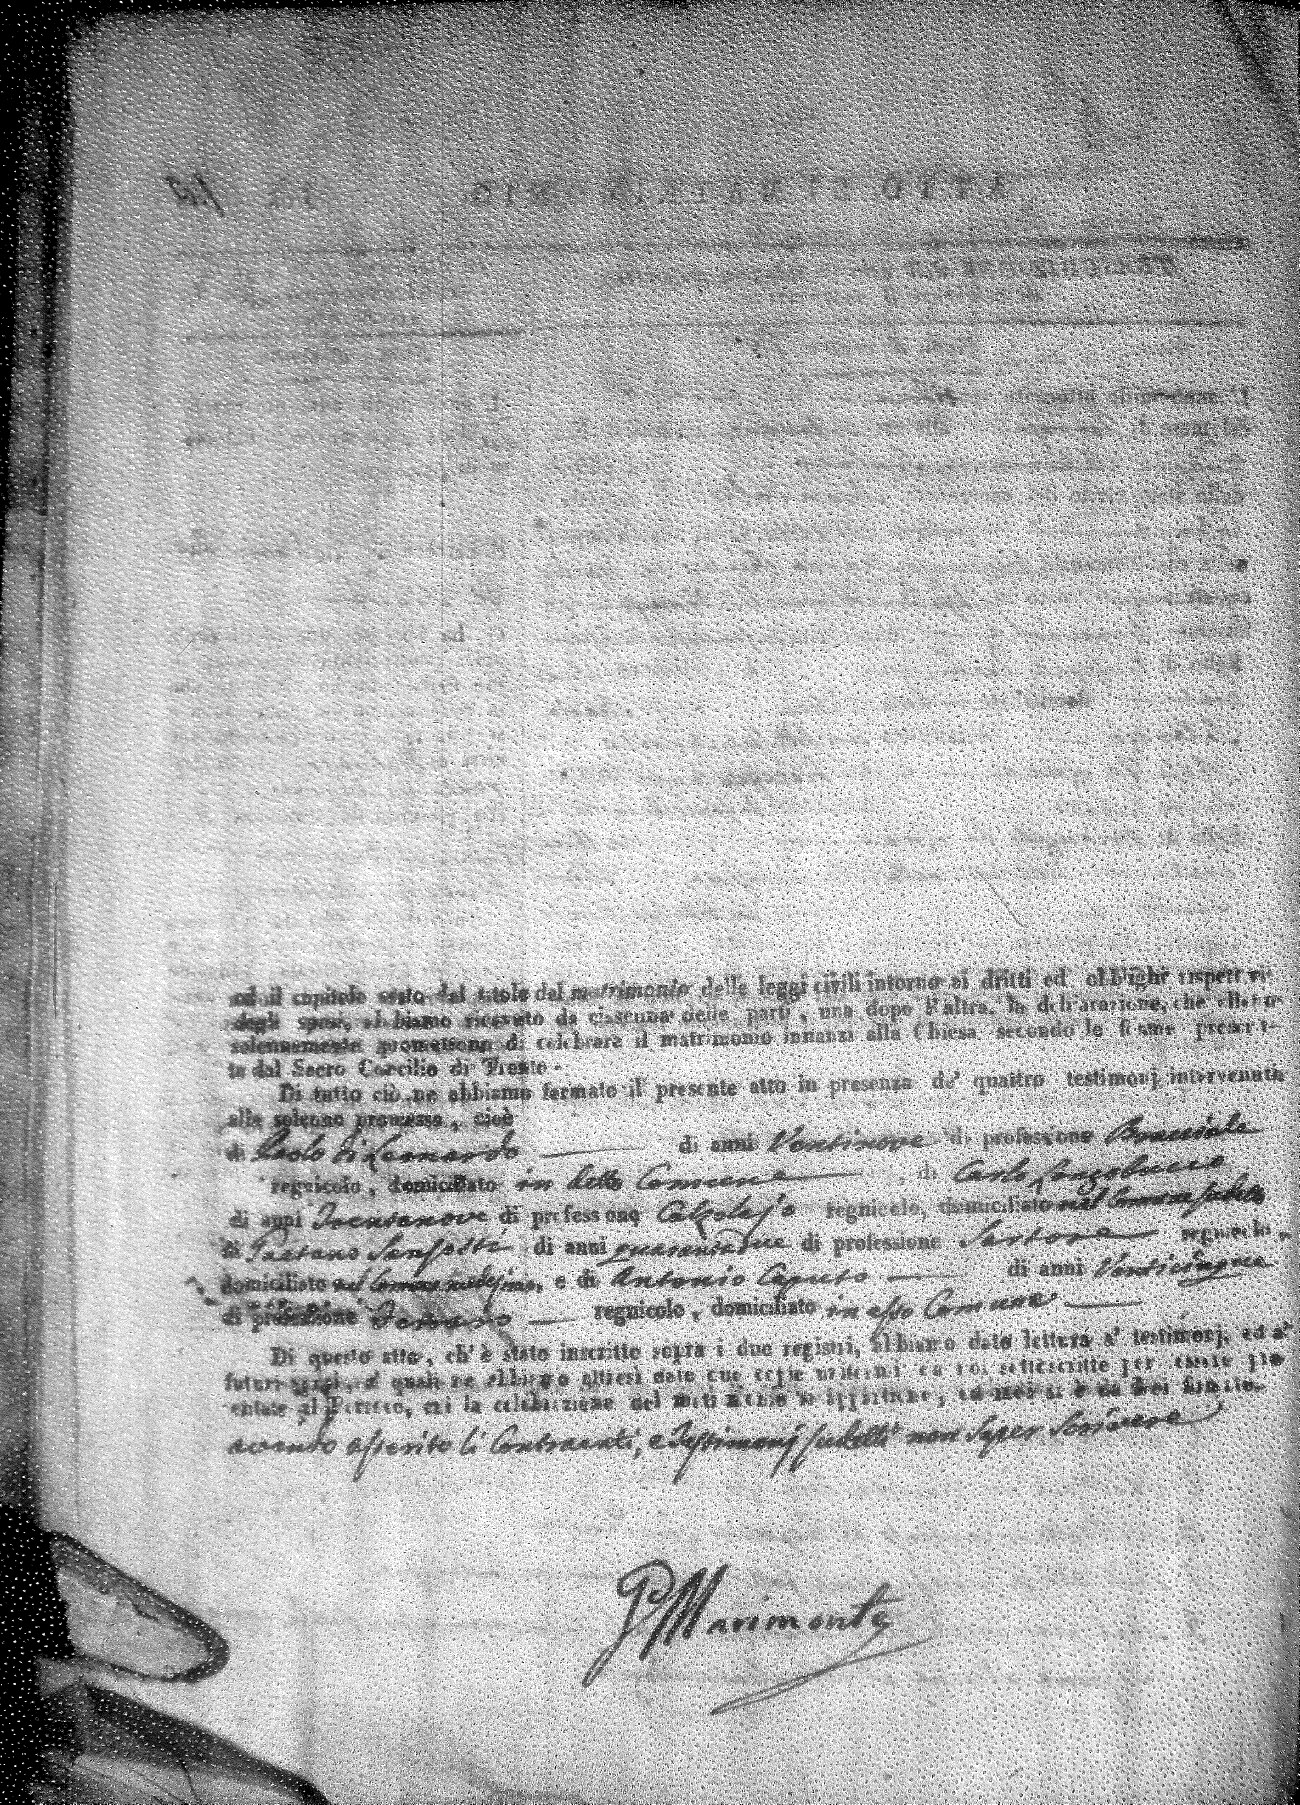 ed il capitolo sesto del titolo del matrimonio delle leggi civili intorno ai dritti ed obblighi rispettivi
degli sposi, abbiamo ricevuto da ciascuna delle parti, una dopo l'altra, la dichiarazione, che elleno
solennemente promettono di celebrare il matrimonio innanzi alla Chiesa secondo le forme prescrit-
te dal Sacro Concilio di Trento.
Di tutto ciò ne abbiamo formato il presente atto in presenza de' quattro testimonj intervenuti
alla solenne promessa, cioè
di Paolo Di Leonardo di anni Ventinove di professione Bracciale
regnicolo, domiciliato in detto Comune, di Carlo Longobucco
di anni Trentanove di professione Calzolajo regnicolo, domiciliato nel Comune sudetto
di Gaetano di anni quarantadue di professione Sartore regnicolo
domiciliato nel Comune medesimo, e di Antonio Caputo di anni Venticinque
di professione regnicolo, domiciliato in esso Comune
Di questo atto, ch' è stato inscritto sopra i due registri, abbiamo dato lettura a' testimonj, ed a'
futuri sposi, a' quali ne abbiamo altresì date due copie uniformi da noi sottoscritte per essere pre-
sentate al Parroco, cui la celebrazione del matrimonio si appartiene, ed indi si è da noi firmato
avendo asserito li Contraenti, e Testimonj sudetti non Saper Scrivere
Marimonte